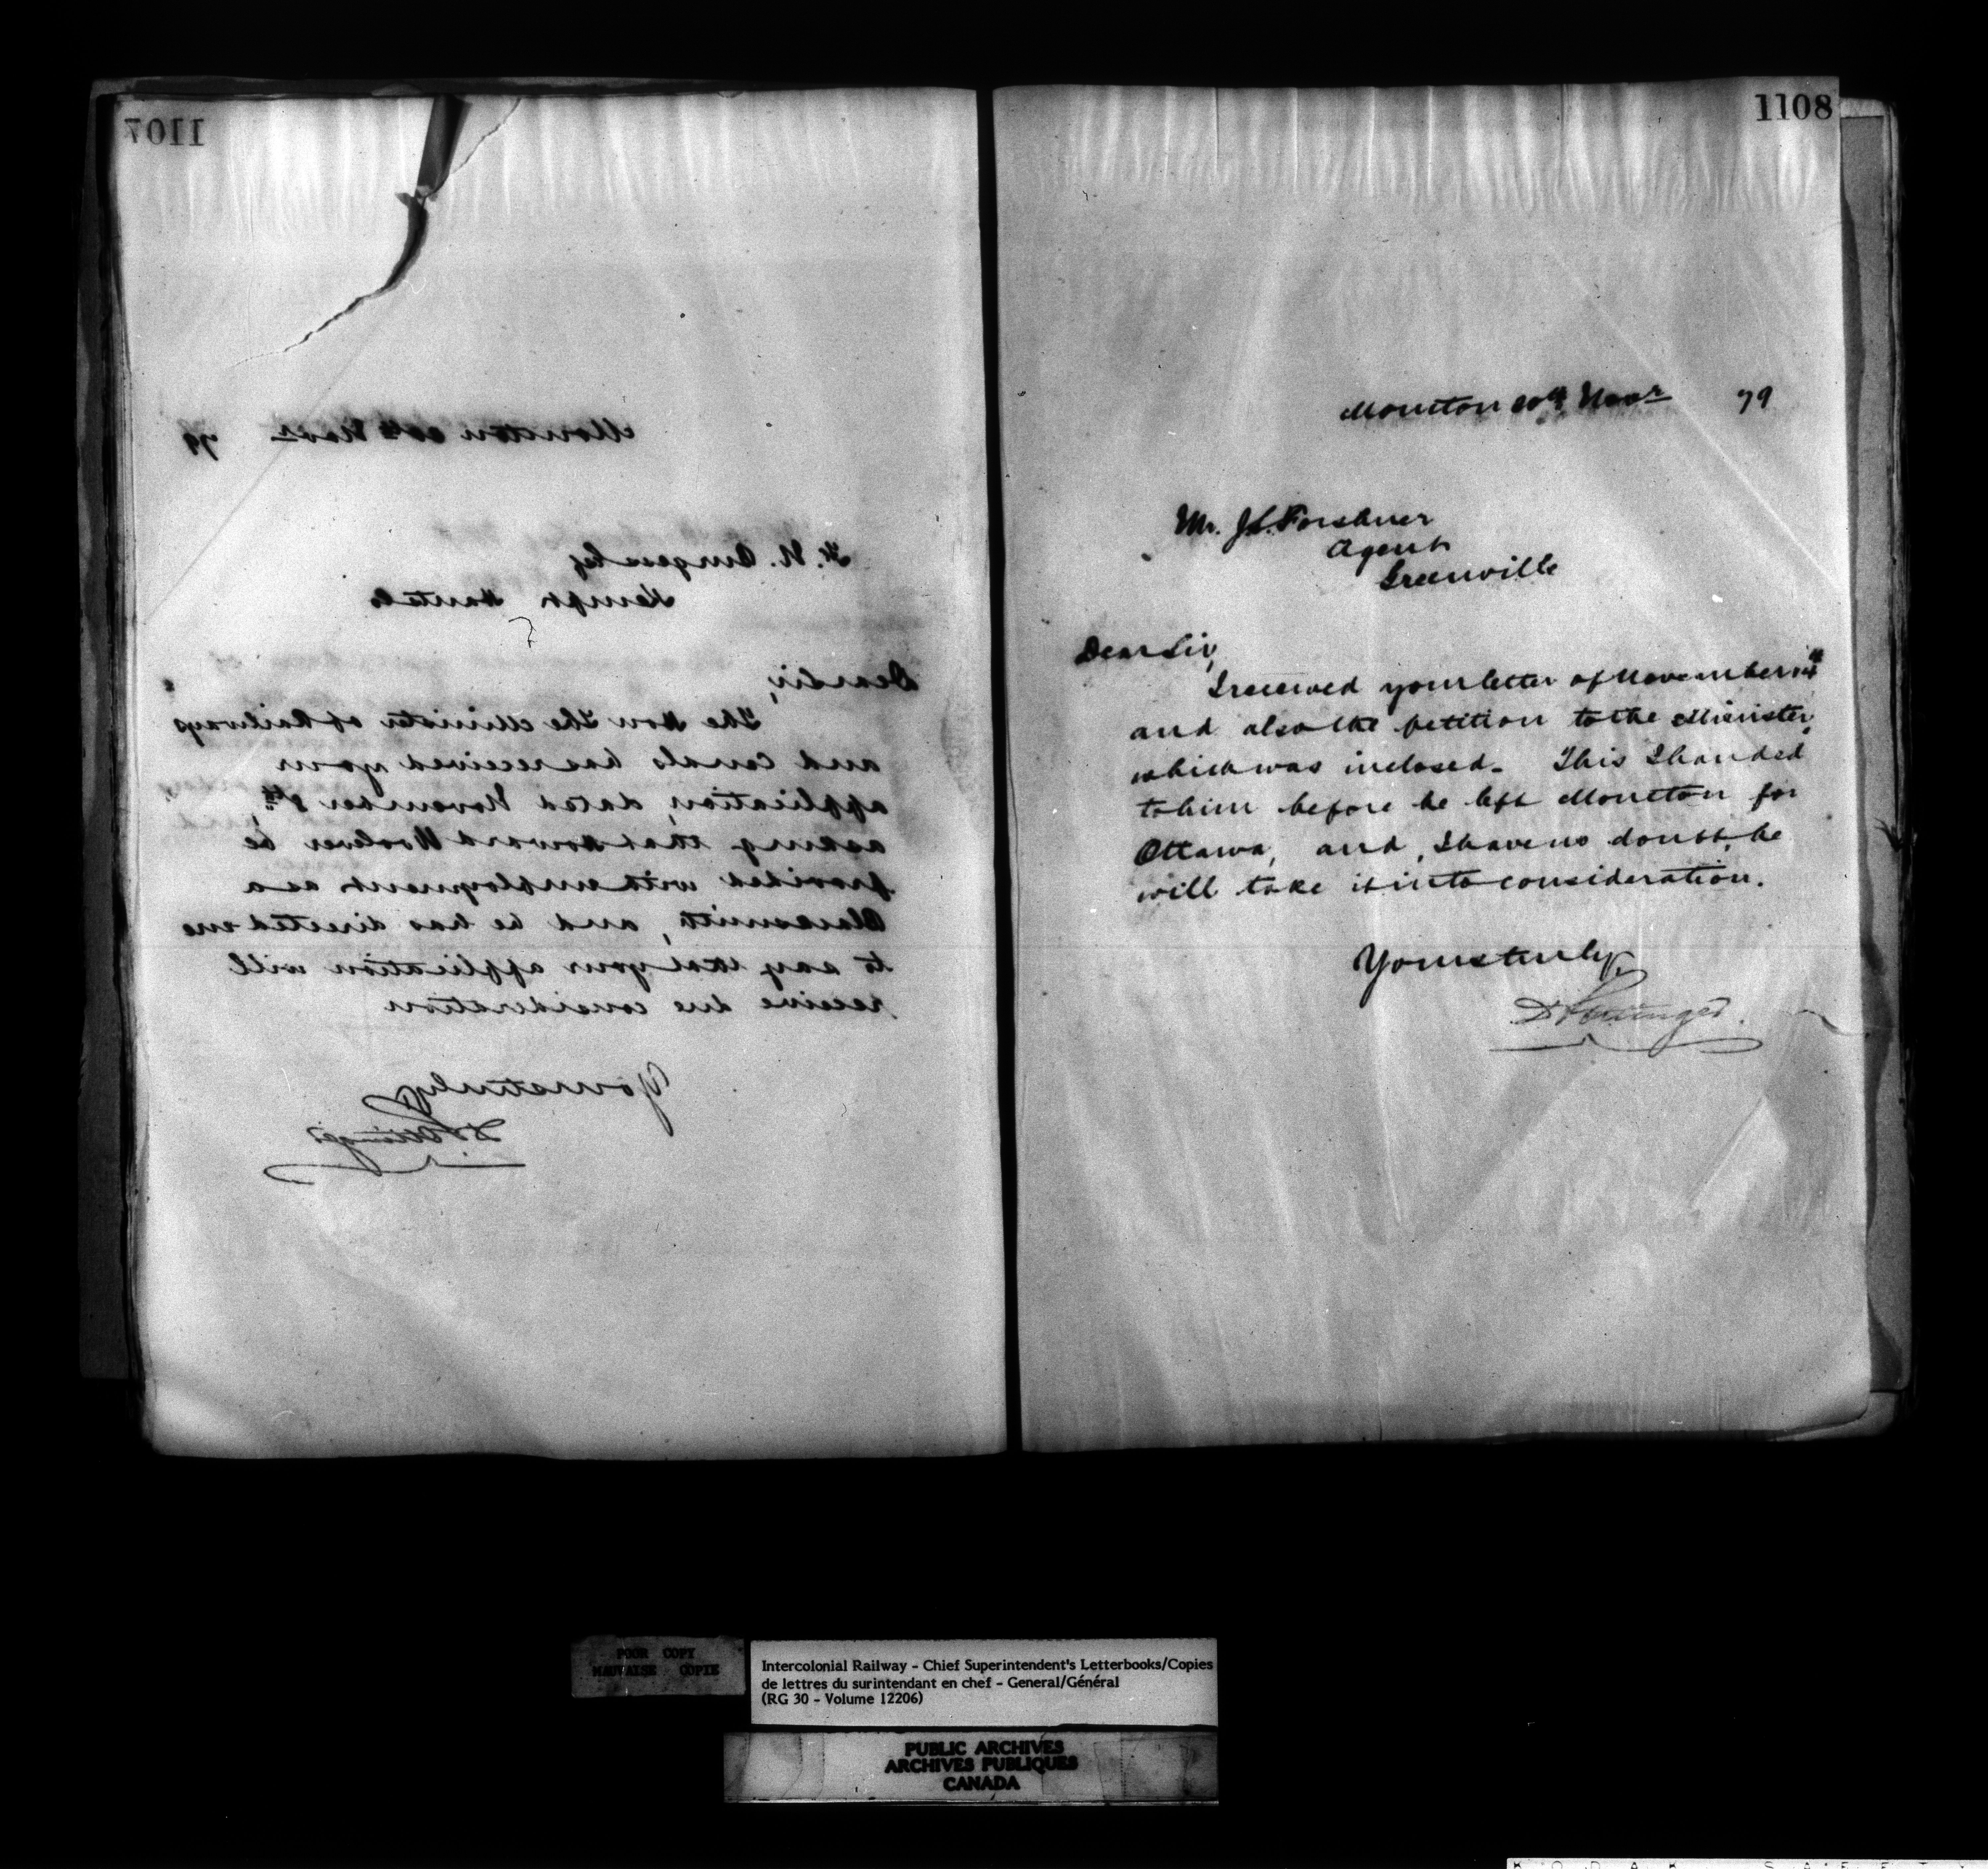 1107
Moncton 20th Novr 79
Kempt Hants Co
Dear Sir,
The Hon The Minister of Railways
and Canals has received your
application, dated November 8th,
asking that Howard Woolever be
provided with employment as a
Blacksmith, and he has directed me
to say that your application will
receive due consideration
Yours truly,
D Pottinger
1108
Moncton 20th Novr 79
Mr. J. Forshner
Agent
Greenville
Dear Sir,
I received your letter of November
and also the petition to the Minister,
which was inclosed. This I handed
to him before he left Moncton for
Ottawa, and, I have no doubt, he
will take it into consideration.
Yours truly,
D Pottinger.
POOR COPY
MAUVAISE COPIE
Intercolonial Railway - Chief Superintendent's Letterbooks/Copies
de lettres du surintendant en chef - General/Général
(RG 30 - Volume 12206)
PUBLIC ARCHIVES
ARCHIVES PUBLIQUES
CANADA